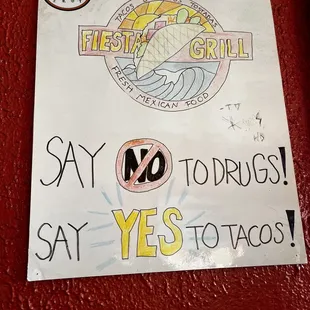 TACOS TOSTADAS
FIESTA GRILL
FRESH MEXICAN FOOD
SAY NO TO DRUGS!
SAY YES TO TACOS!